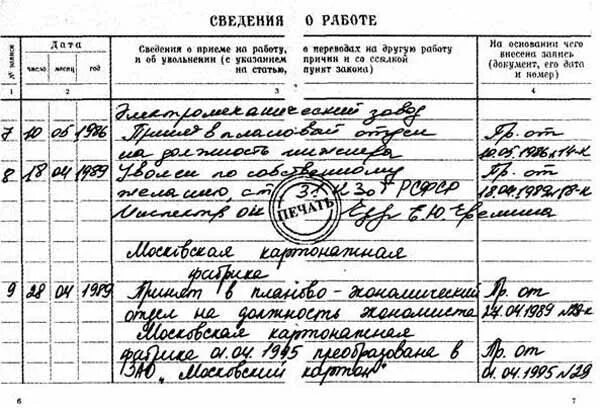 СВЕДЕНИЯ О РАБОТЕ
№ записи
Дата
Сведения о приеме на работу, о переводах на другую работу
и об увольнении (с указанием причин и со ссылкой
на статью, пункт закона)
На основании чего
внесена запись
(документ, его дата
и номер)
число месяц год
1 2 3 4
Электромеханический завод
7 10 05 1986 Принят в плановый отдел Пр. от
на должность инженера 10.05.1986 №14-К
8 18 04 1989 Уволен по собственному Пр. от
желанию, ст. 31 КЗоТ РСФСР 18.04.1989 №18-К
Инспектор ОК Е.Ю. Еремина
ПЕЧАТЬ
Московская картонажная
фабрика
9 28 04 1989 Принят в планово-экономический Пр. от
отдел на должность экономиста 27.04.1989 №29-к
Московская картонажная
фабрика 01.04.1995 преобразована в Пр. от
ЗАО „Московский картон" 01.04.1995 №29
6 7